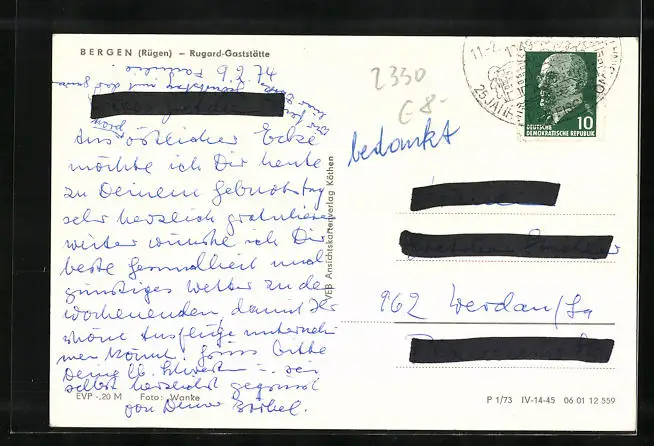 BERGEN (Rügen) – Rugard-Gaststätte
9.2.74
Aus östlicher Ecke
möchte ich Dir heute
zu Deinem Geburtstag
sehr herzlich gratulieren
weiter wünsche ich Dir
beste Gesundheit und
günstiges Wetter zu den
Wochenenden, damit Ihr
schöne Ausflüge unterneh
men könnt. Grüss bitte
Deine lb. Schwester u. sei
selbst herzlichst gegrüsst
von Deiner Bärbel.
EVP -,20 M Foto: Wanke
VEB Ansichtskartenverlag Köthen
2330
€ 8-
bedankt
25 JAHRE
DEUTSCHE
DEMOKRATISCHE REPUBLIK
10
962 Werdau/Sa
P 1/73 IV-14-45 06 01 12 559